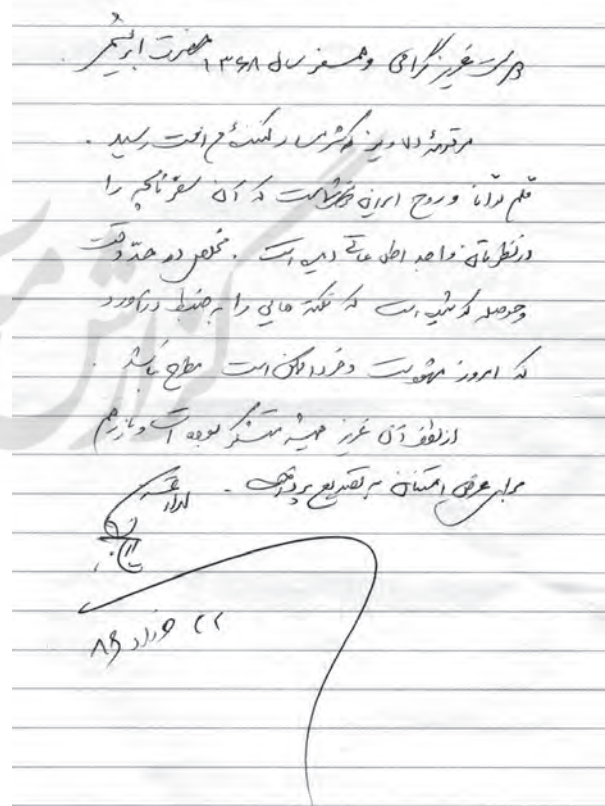 دوست عزیز گرامی و همسفر سال ۱۳۶۸ حضرت ابریشمی
مرقومهٔ دلاویز که شرمسار کنندهٔ هم است رسید.
قلم توانا و روح ایرانی شماست که آن سفرنامچه را
در نظرتان واجد اطلاعاتی دیده است. مخلص در حد وقت
و حوصله کوشیده است که نکته‌هایی را به ضبط درآورد
که امروز مشهودست و فردا ممکن است مطرح باشد.
از لطف آن عزیز همیشه متشکر بوده است و باز هم
برای عرض امتنان به تصدیع پرداخت.
ارادتمند
ایرج
۲۲ خرداد ۸۹
گزارش